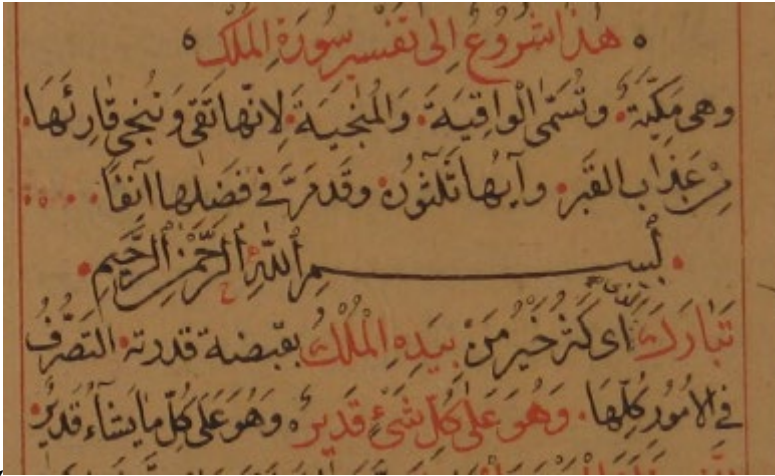 هٰذا شُرُوعٌ اِلىٰ تَفْسيرِ سُورَةِ المُلْكِ
وهى مَكّيّة وتُسَمّى الواقِيَةَ والمُنْجِيَةَ لِانّها تَقى وَتُنْجى قارِئَها
مِنْ عَذابِ القَبرِ وآيها ثَلثُونَ وقَدمَرَّ فى فَضْلها آنفًا
بِسْمِ اللهِ الرَّحْمٰنِ الرَّحيمِ
تَبٰارَكَ اى كَثُرَ خَيْرُ مَنْ بِيَدِهِ المُلْكُ بقَبضة قدرته التَصَرُّفُ
فى الامُورِ كُلِّها وَهُوَ عَلىٰ كُلِّ شَىْءٍ قَديرٌ وَهُوَ عَلى كُلِّ مايَشآءُ قَديرٌ